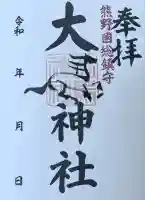 奉拝
熊野国総鎮守
大神社
令和 年 月 日